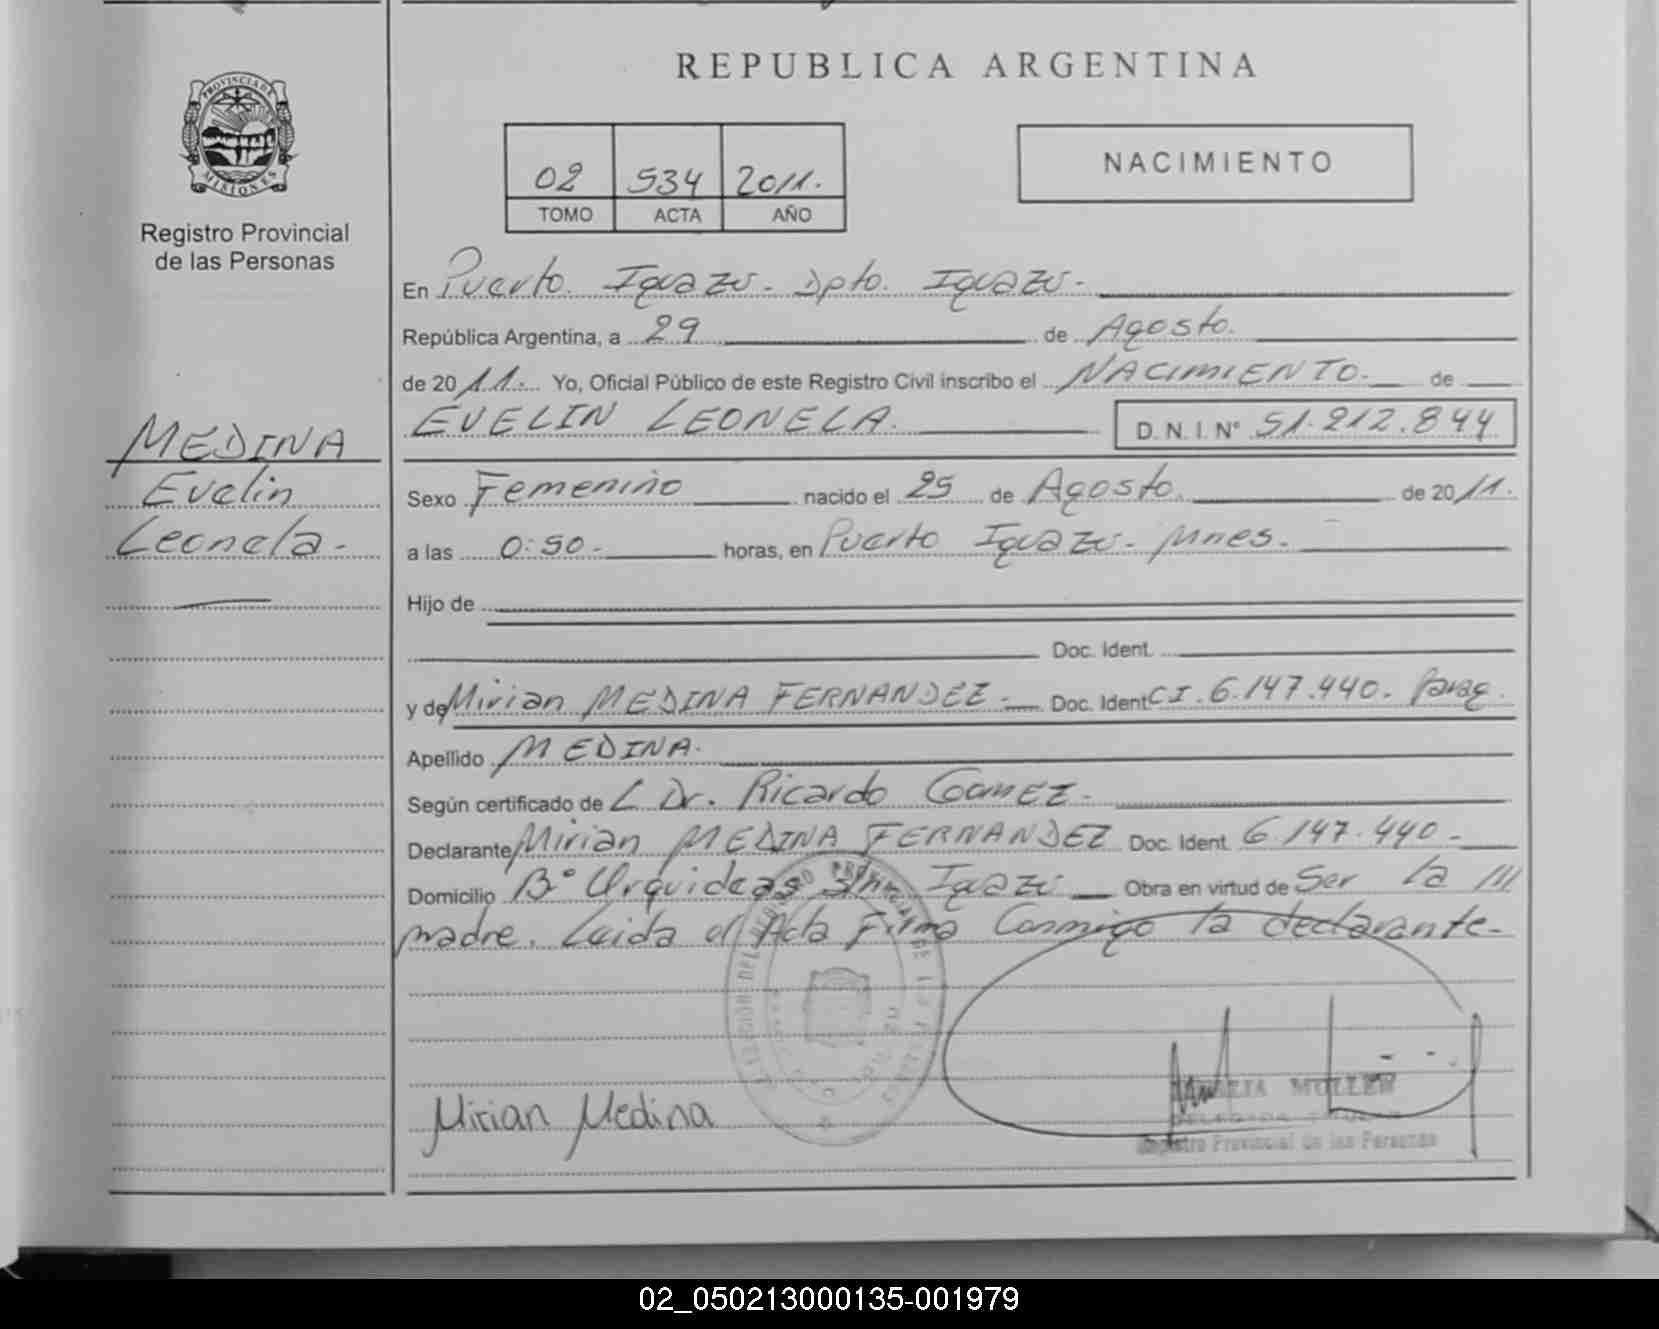 REPUBLICA ARGENTINA
PROVINCIA DE
MISIONES
Registro Provincial
de las Personas
02 534 2011.
TOMO ACTA AÑO
NACIMIENTO
En Puerto Iguazú. Dpto. Iguazú.-
República Argentina, a 29 de Agosto.
de 2011. Yo, Oficial Público de este Registro Civil inscribo el NACIMIENTO. de
EVELIN LEONELA. D. N. I. Nº 51.212.844
MEDINA
Evelin
Leonela.-
Sexo Femenino nacido el 25 de Agosto. de 2011.
a las 0:50.- horas, en Puerto Iguazú. Mnes.-
Hijo de
Doc. Ident.
y de Mirian MEDINA FERNANDEZ.- Doc. Ident CI. 6.147.440. Parag.
Apellido MEDINA.
Según certificado de L Dr. Ricardo GOMEZ.-
Declarante Mirian MEDINA FERNANDEZ Doc. Ident. 6.147.440.-
Domicilio Bº Orquideas S/n Iguazú Obra en virtud de Ser la
madre. Leida el Acta Firma Conmigo la declarante.-
Mirian Medina
MULLER
Registro Provincial de las Personas
02_050213000135-001979